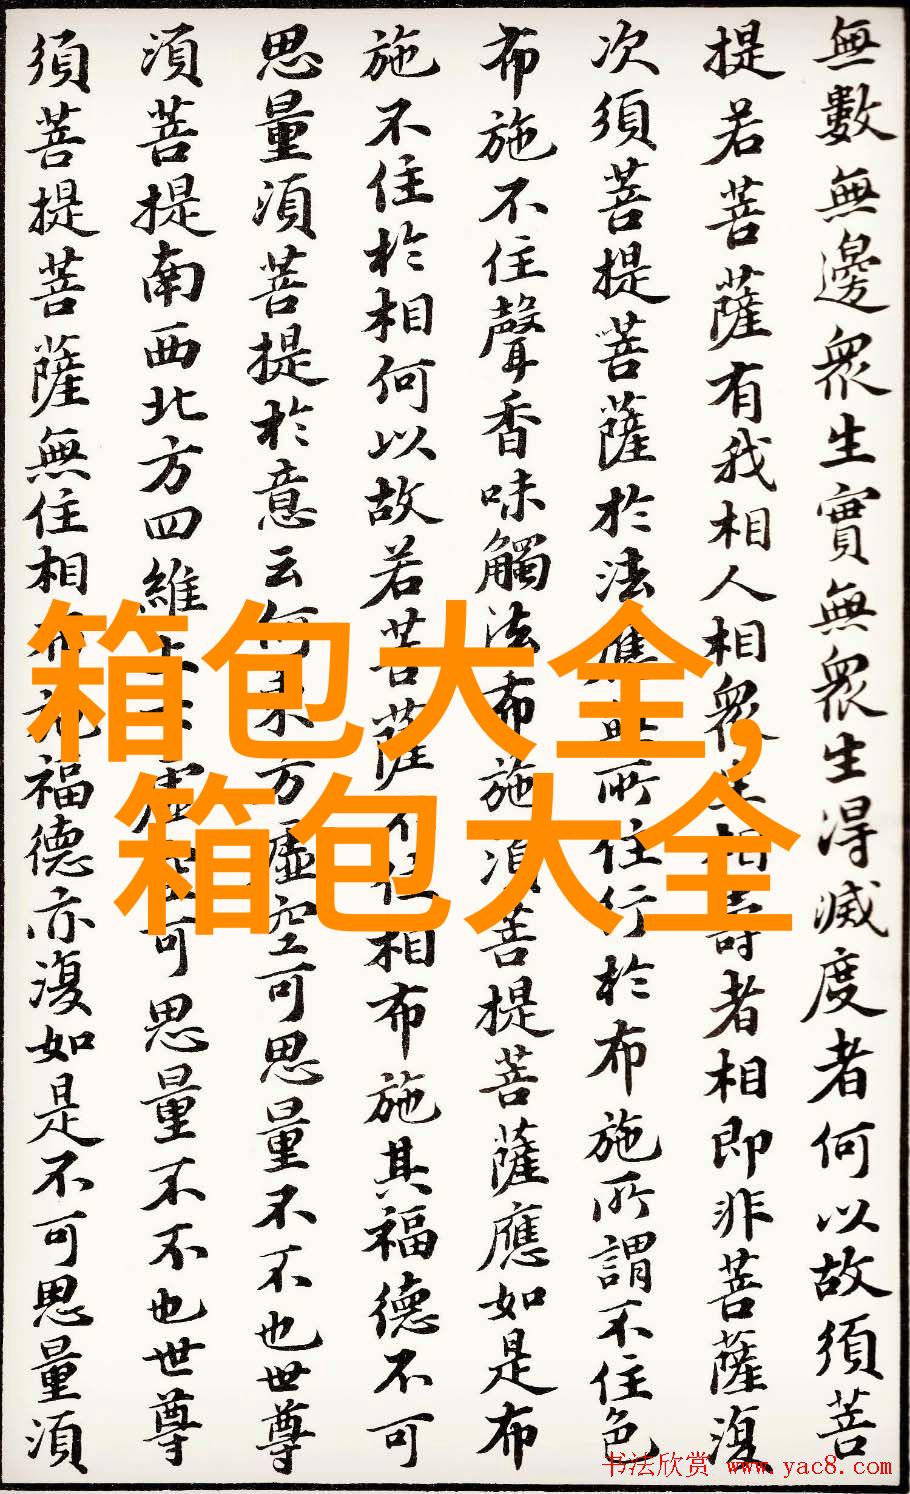 無數無邊衆生實無衆生得滅度者何以故須菩
提若菩薩有我相人相衆生相壽者相即非菩薩復
次須菩提菩薩於法應無所住行於布施所謂不住色
布施不住聲香味觸法布施須菩提菩薩應如是布
施不住於相何以故若菩薩不住相布施其福德不可
思量須菩提於意云何東方虛空可思量不不也世尊
須菩提南西北方四維上下虛空可思量不不也世尊
須菩提菩薩無住相布施福德亦復如是不可思量須
箱包大全,
箱包大全
书法欣赏 www.yac8.com